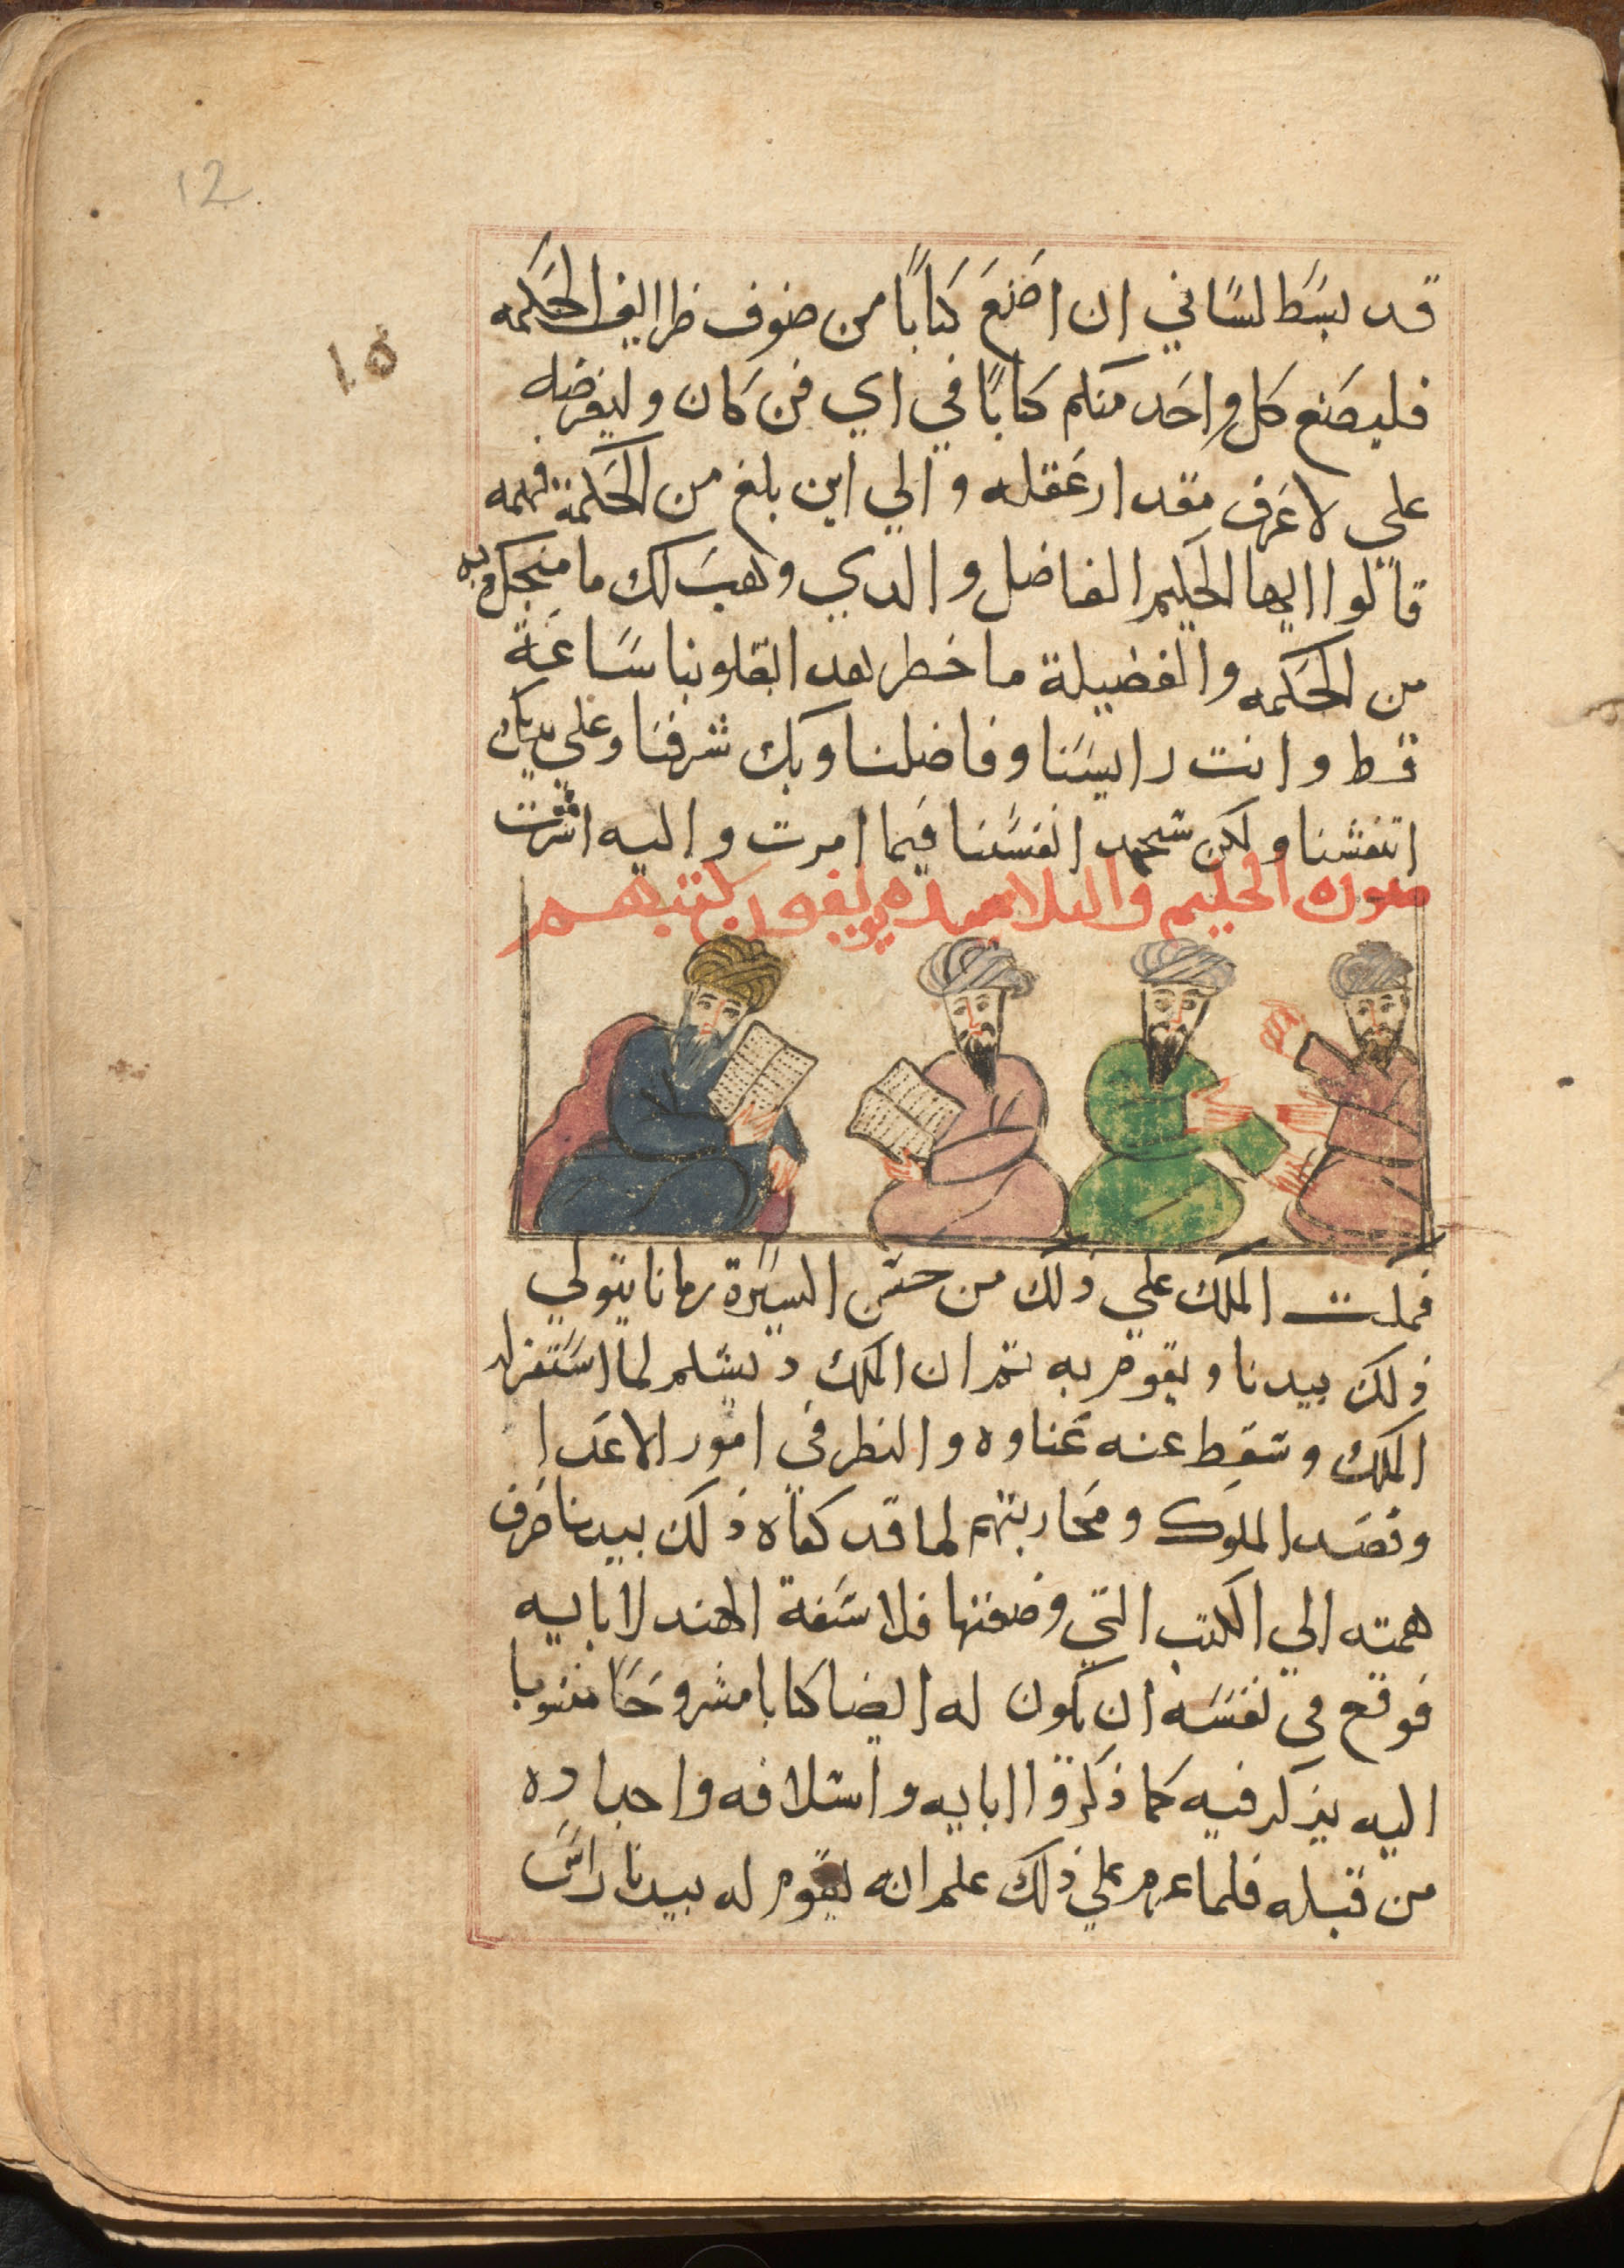 12
١٥
قد بسَط لسَاني ان اصَنعَ كتابًا من ضنوف ظرايف الحَكمه
فليصَنع كل واحَد منكم كتابًا في اي فن كَان وليعرضه
علي لاعَرف مقدار عَقله والي اين بلغ من الحَكمة فهمه
قالوا ايها الحَكيم الفاضل والدي وهبَ لك ما منحك به
من الحَكمه والفضيلة ما خطر هدا بقلوبنا سَاعَة
قط وانت راييسَنا وفاضلنا وبك شرفنا وعَلي يديك
انتفشنا ولكن سَنجهد انفسَنا فيما امرت واليه اشرت
صوره الحكيم والتلاميده يولفون كتبهم
فمكت الملك علي ذلك من حسَن السيرة زمانا يتولي
ذلك بيدنا ويقوم به تم ان الملك دبشلم لما اسَتقر له
الملك وسَقط عنه عَناوه والنظر في امور الاعَدا
وقصَد الملوك ومحَاربتهم لما قد كفاه ذلك بيدنا صَرف
همته الي الكتب التي وضعتها فلاسَفة الهند لابايه
فوقع في نفسَه ان يكون له ايضا كتابا مشروحَا منسَوبا
اليه يذكر فيه كما ذكر قا ابايه واسَلافه واجداده
من قبله فلما عزم علي ذلك علم انه ليقوم له بيدنا راسَ